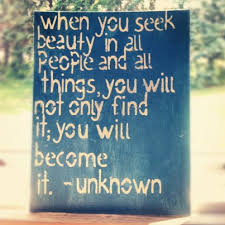 when you seek
beauty in all
people and all
things, you will
not only find
it; you will
become
it. - unknown